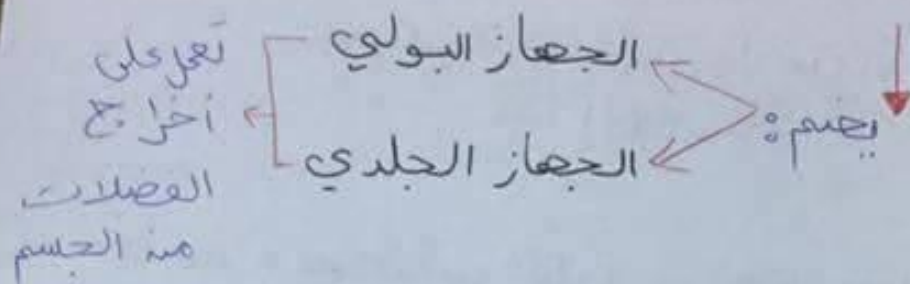 يضم:
الجهاز البولي
الجهاز الجلدي
تعمل على
أخراج
الفضلات
من الجسم